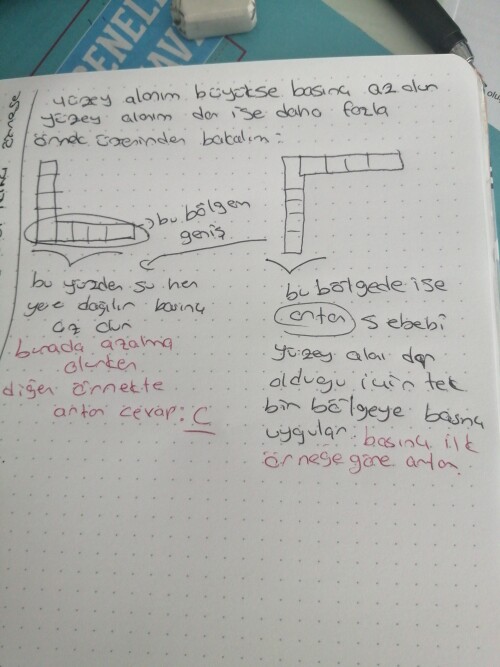 GENEL
yüzey alanım büyükse basınç az olur
yüzey alanım dar ise daha fazla
örnek üzerinden bakalım:
bu bölgem
geniş
bu yüzden su her
yere dağılır basınç
az olur
burada azalma
olurken
diğer örnekte
artar cevap: C
bu bölgede ise
artar sebebi
yüzey alanı dar
olduğu için tek
bir bölgeye basınç
uygular. basınç ilk
örneğe göre artar.